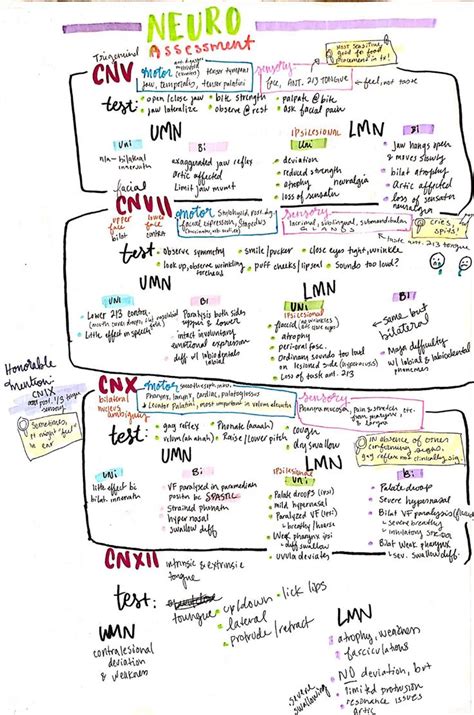 NEURO
Assessment
Trigeminal
CNV
motor
tensor tympani
jaw, temporalis, tensor palatini
sensory
face, ANT. 2/3 TONGUE
feel, not taste
most sensitive,
good for food
placement in tx!
test:
open/close jaw
bite strength
palpate @ bite
jaw lateralize
observe @ rest
ask facial pain
UMN
Uni
n/a - bilateral
innervatn
Bi
exaggerated jaw reflex
Artic affected
Limit jaw mvmt
LMN
IPSILESIONAL
Uni
deviation
reduced strength
atrophy
neuralgia
loss of sensatn
Bi
Jaw hangs open
& moves slowly
bilat atrophy
Artic affected
loss of sensatn
neuralgia
facial
CNVII
upper face
bilat
lower face
contra
motor
Stylohyoid, post. dig.
facial expression, Stapedius
sensory
lacrimal, sublingual, submandibular
GLANDS
taste ant. 2/3 tongue
cries,
spits!
test:
observe symmetry
smile/pucker
close eyes tight, wrinkle
look up, observe wrinkling
forehead
puff cheeks/lipseal
Sounds too loud?
UMN
Uni
Lower 2/3 contra.
Little effect on speech
Bi
Paralysis both sides
upper & lower
intact involuntary
emotional expression
diff w/ labiodentals
LMN
Uni
ipsilesional
flaccid
atrophy
perioral fasc.
Ordinary sounds too loud
on lesioned side (hyperacusis)
Loss of taste ant. 2/3
Bi
same but
bilateral
Major difficulty
w/ labial & labiodental
phonemes
Honorable
mention:
CNIX
post. 1/3 tongue
sensory
Sometimes,
pt might "feel"
in ear
CNX
bilateral
nucleus
ambiguus
motor
Pharynx, larynx, cardiac, palatoglossus
Levator Palatini, most important in velum elevation
sensory
Pharynx mucosa,
Pain & stretch
from pharynx
test:
gag reflex
Phonate (aaaah)
cough
velum (ah ah ah)
Raise/lower pitch
dry swallow
in absence of other
confirming signs,
gag reflex not clinically sig.
UMN
Uni
little effect bc
bilat. innervatn
Bi
VF paralyzed in paramedian
position bc SPASTIC
strained phonatn
hypernasal
swallow diff
LMN
ipsilesional
Uni
Palate droops (ipsi)
mild hypernasal
Paralyzed VF (ipsi)
breathy/hoarse
Weak pharynx ipsi
diff swallow
uvula deviates
Bi
Palate droop
Severe hypernasal
Bilat VF paralysis (flaccid)
Severe breathy
inhalatory stridor
Bilat weak pharynx
sev. Swallow diff.
CNXII
intrinsic & extrinsic
tongue
test:
tongue
up/down
lick lips
lateral
protrude/retract
UMN
contralesional
deviation
& weakness
LMN
atrophy, weakness
fasciculations
NO deviation, but
limited protrusion
resonance issues
Artic
severe
swallowing